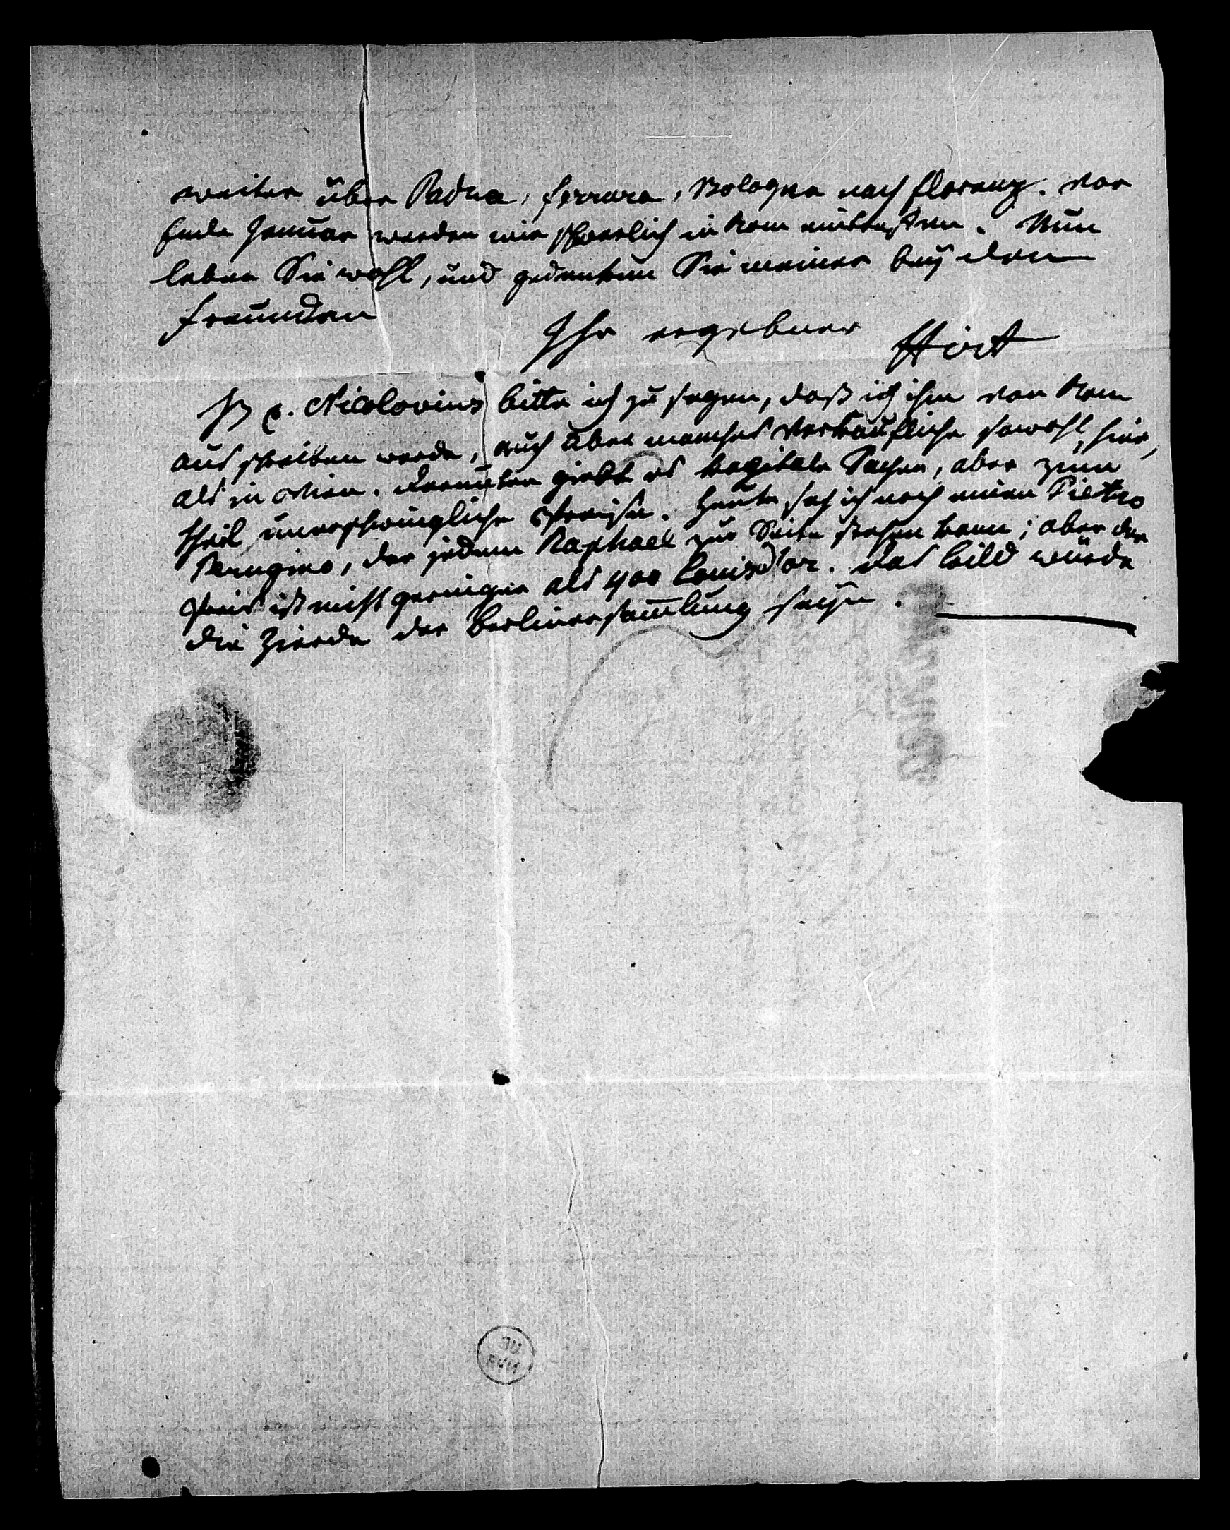 weiter über Padua, Ferrara, Bologna nach Florenz. Vor
Ende Januar werden wir schwerlich in Rom eintreffen. Nun
leben Sie wohl, und gedenken Sie meiner bey den
Freunden
Ihr ergebner Hirt
H. Nicolovius bitte ich zu sagen, daß ich ihm von Rom
aus schreiben werde, auch über manches Verkäufliche sowohl hier,
als in Wien. Darunter giebt es kapitale Sachen, aber zum
theil unerschwingliche Preise. Heute sah ich noch einen Pietro
Perugino, der jedem Raphael zur Seite stehen kann; aber der
Preis ist nicht geringer als 400 Louisd'or. Das Bild würde
die Zierde der Berlinersammlung seyn.